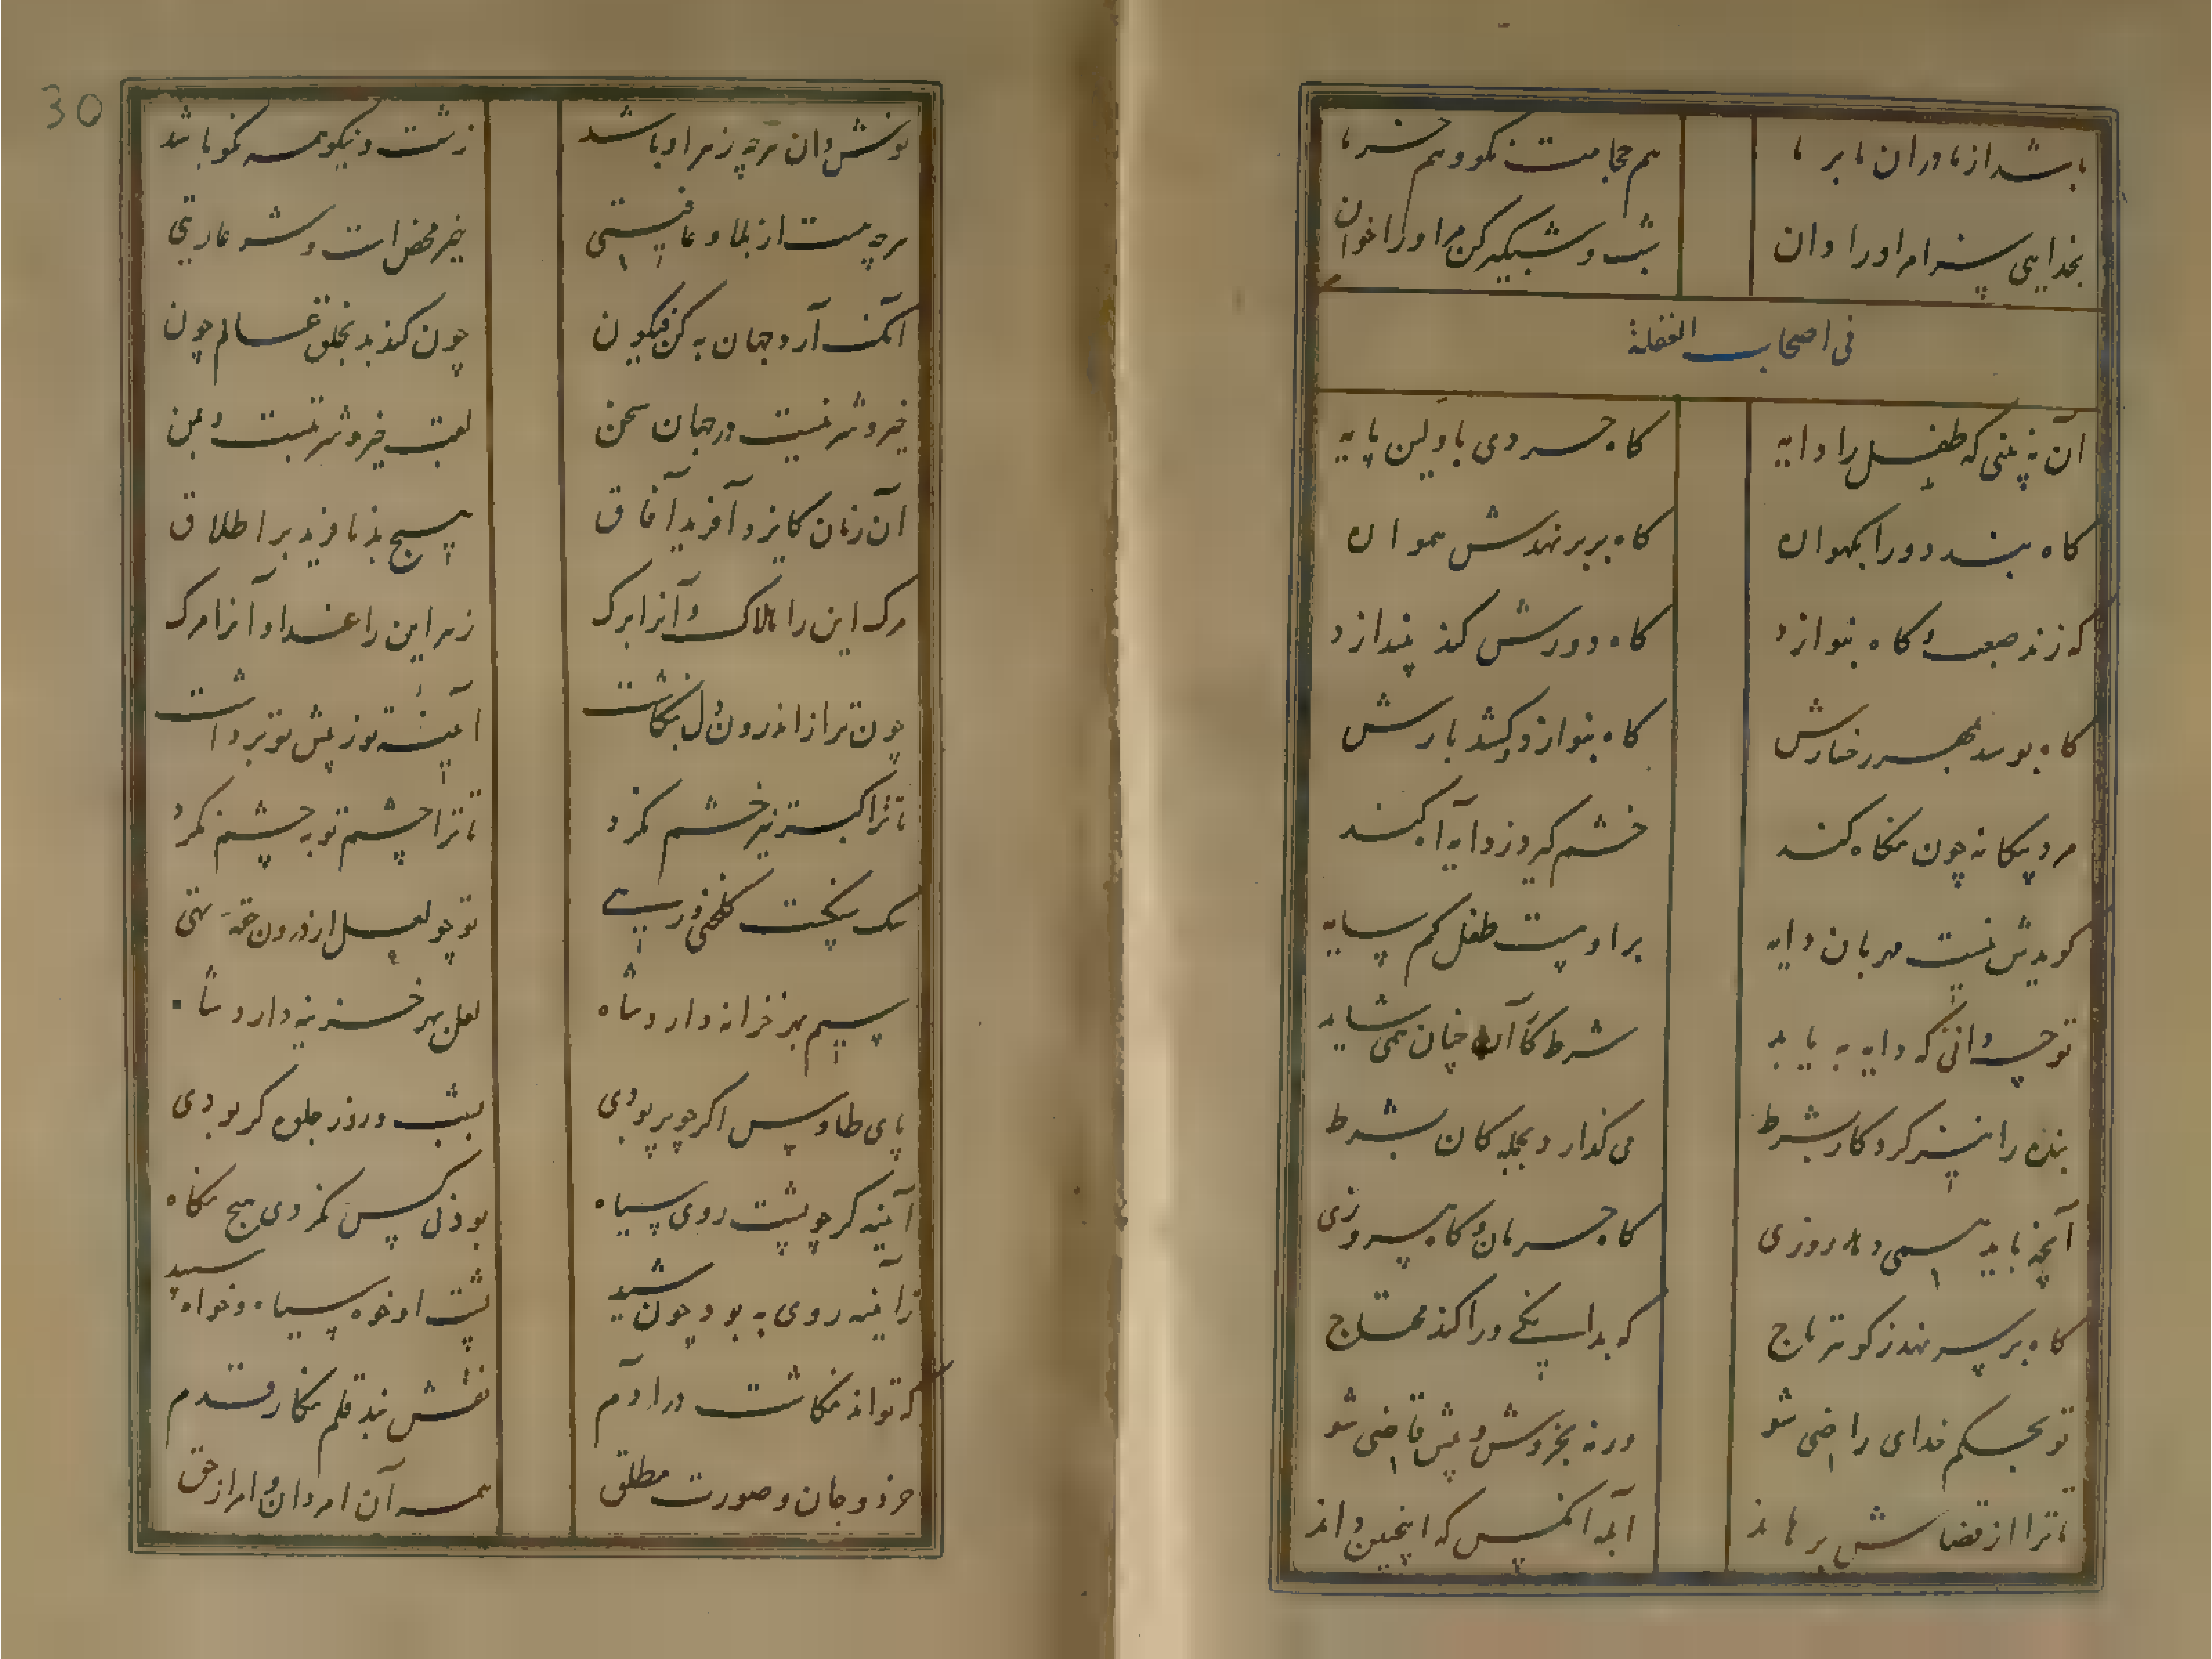 باشد از مادران ما بر ما    هم حجامت نکو و هم خرما
بخدایی سزا مر اورا دان    شب و شبگیر کن مر اورا خوان
فی اصحاب الغفلة
آن نه بینی که طفل را دایه    کاه خردی باولین پایه
کاه بندد ورا بکهواره    کاه بر بر نهدش همواره
که زند صعب و کاه بنوازد    کاه دورش کند بیندازد
کاه بوسد بمهر رخسارش    کاه بنوازد و کشد بارش
مرد بیکانه چون نکاه کند    خشم کیرد ز دایه آه کند
کویدش نیست مهربان دایه    بر او هست طفل کم سایه
تو چه دانی که دایه به باید    شرط کار آن چنان همی شاید
بنده را نیز کردکار بشرط    می کذارد بجمله کار بشرط
آنچه باید همی دهد روزی    کاه حرمان و کاه پیروزی
کاه بر سر نهد ز کوهر تاج    که بدانکی ورا کند محتاج
تو بحکم خدای راضی شو    ورنه بخروش و پیش قاضی شو
تا ترا از قضاش برهاند    ابله آنکس که اینچنین داند
30
نوش دان هرچه زهر او باشد    زشت و نیکو همه نکو باشد
هرچه هست از بلا و عافیتی    خیر محض است و شر عاریتی
آنکه آرد جهان به کن فیکون    چون کند بد بخلق عالم چون
خیر و شر نیست در جهان سخن    لقب خیر و شر بتست و بمن
آن زمان کایزد آفرید آفاق    هیچ بد نافرید بر اطلاق
مرک این را هلاک و آنرا برک    زهر این را غدا و آنرا مرک
چون ترا از اندرون دل بنکاشت    آینه تو ز پیش تو برداشت
تا ترا کبر تیز خشم نکرد    تا ترا چشم تو به چشم نکرد
نیک بنکیخت کلخنی در پی    تو چو لعل از درون حقه نهی
سیم بهر خزانه دارد شاه    لعل بهر خزینه دارد شاه
پای طاوس اکر چو پر بودی    بشب و روز جلوه کر بودی
آینه کر چو پشت روی سیاه    بودی کس نکردی هیچ نکاه
ز آینه روی به بود چون شید    پشت او خواه سیاه و خواه سپید
که تواند نکاشت در آدم    نقش بند قلم نکار قدم
خرد و جان و صورت مطلق    همه آن امر دان و امر از حق